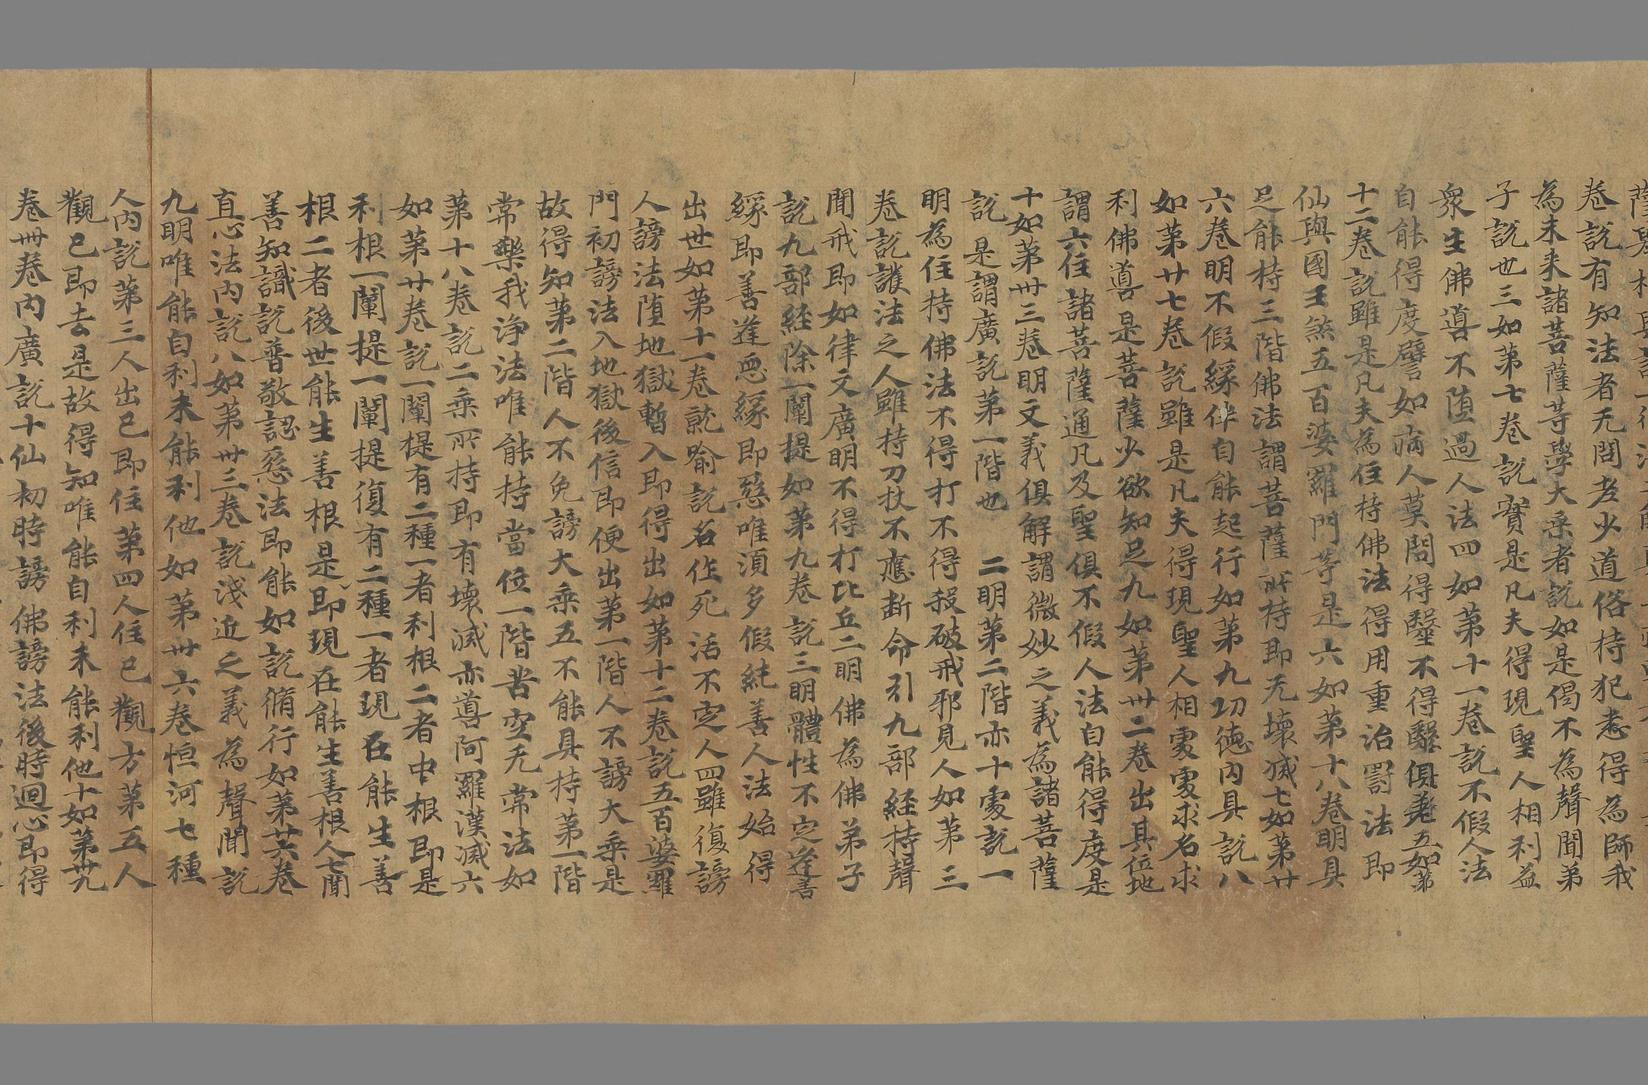 卷說有知法者无問老少道俗持犯悉得為師我
為未来諸菩薩等學大乘者說如是偈不為聲聞弟
子說也三如第七卷說實是凡夫得現聖人相利益
衆生佛道不墮過人法四如第十一卷說不假人法
自能得度譬如病人莫問得毉不得毉俱差五如第
十二卷說雖是凡夫為住持佛法得用重治罰法即
仙與國王煞五百婆羅門等是六如第十八卷明具
足能持三階佛法謂菩薩所持即无壞滅七如第廿
六卷明不假緣伴自能起行如第九功德內具說八
如第廿七卷說雖是凡夫得現聖人相處處求名求
利佛道是菩薩少欲知足九如第卅二卷出其位地
謂六住諸菩薩通凡及聖俱不假人法自能得度是
十如第卅三卷明文義俱解謂微妙之義為諸菩薩
說是謂廣說第一階也 二明第二階亦十處說一
明為住持佛法不得打不得殺破戒邪見人如第三
卷說護法之人雖持刀杖不應斷命引九部經持聲
聞戒即如律文廣明不得打比丘二明佛為佛弟子
說九部經除一闡提如第九卷說三明體性不定逢善
緣即善逢惡緣即惡唯須多假純善人法始得
出世如第十一卷就喻說名作死活不定人四雖復謗
人謗法墮地獄暫入即得出如第十二卷說五百婆羅
門初謗法入地獄後信即便出第一階人不謗大乘是
故得知第二階人不免謗大乘五不能具持第一階
常樂我淨法唯能持當位一階苦空无常法如
第十八卷說二乘所持即有壞滅亦噵阿羅漢滅六
如第廿卷說一闡提有二種一者利根二者中根即是
利根一闡提一闡提復有二種一者現在能生善
根二者後世能生善根是即現在能生善根人七聞
善知識說普敬認惡法即能如說脩行如第廿六卷
真心法內說八如第卅三卷說淺近之義為聲聞說
九明唯能自利未能利他如第卅六卷恒河七種
人內說第三人出已即住第四人住已觀方第五人
觀已即去是故得知唯能自利未能利他十如第卅九
卷卌卷內廣說十仙初時謗佛謗法後時迴心即得